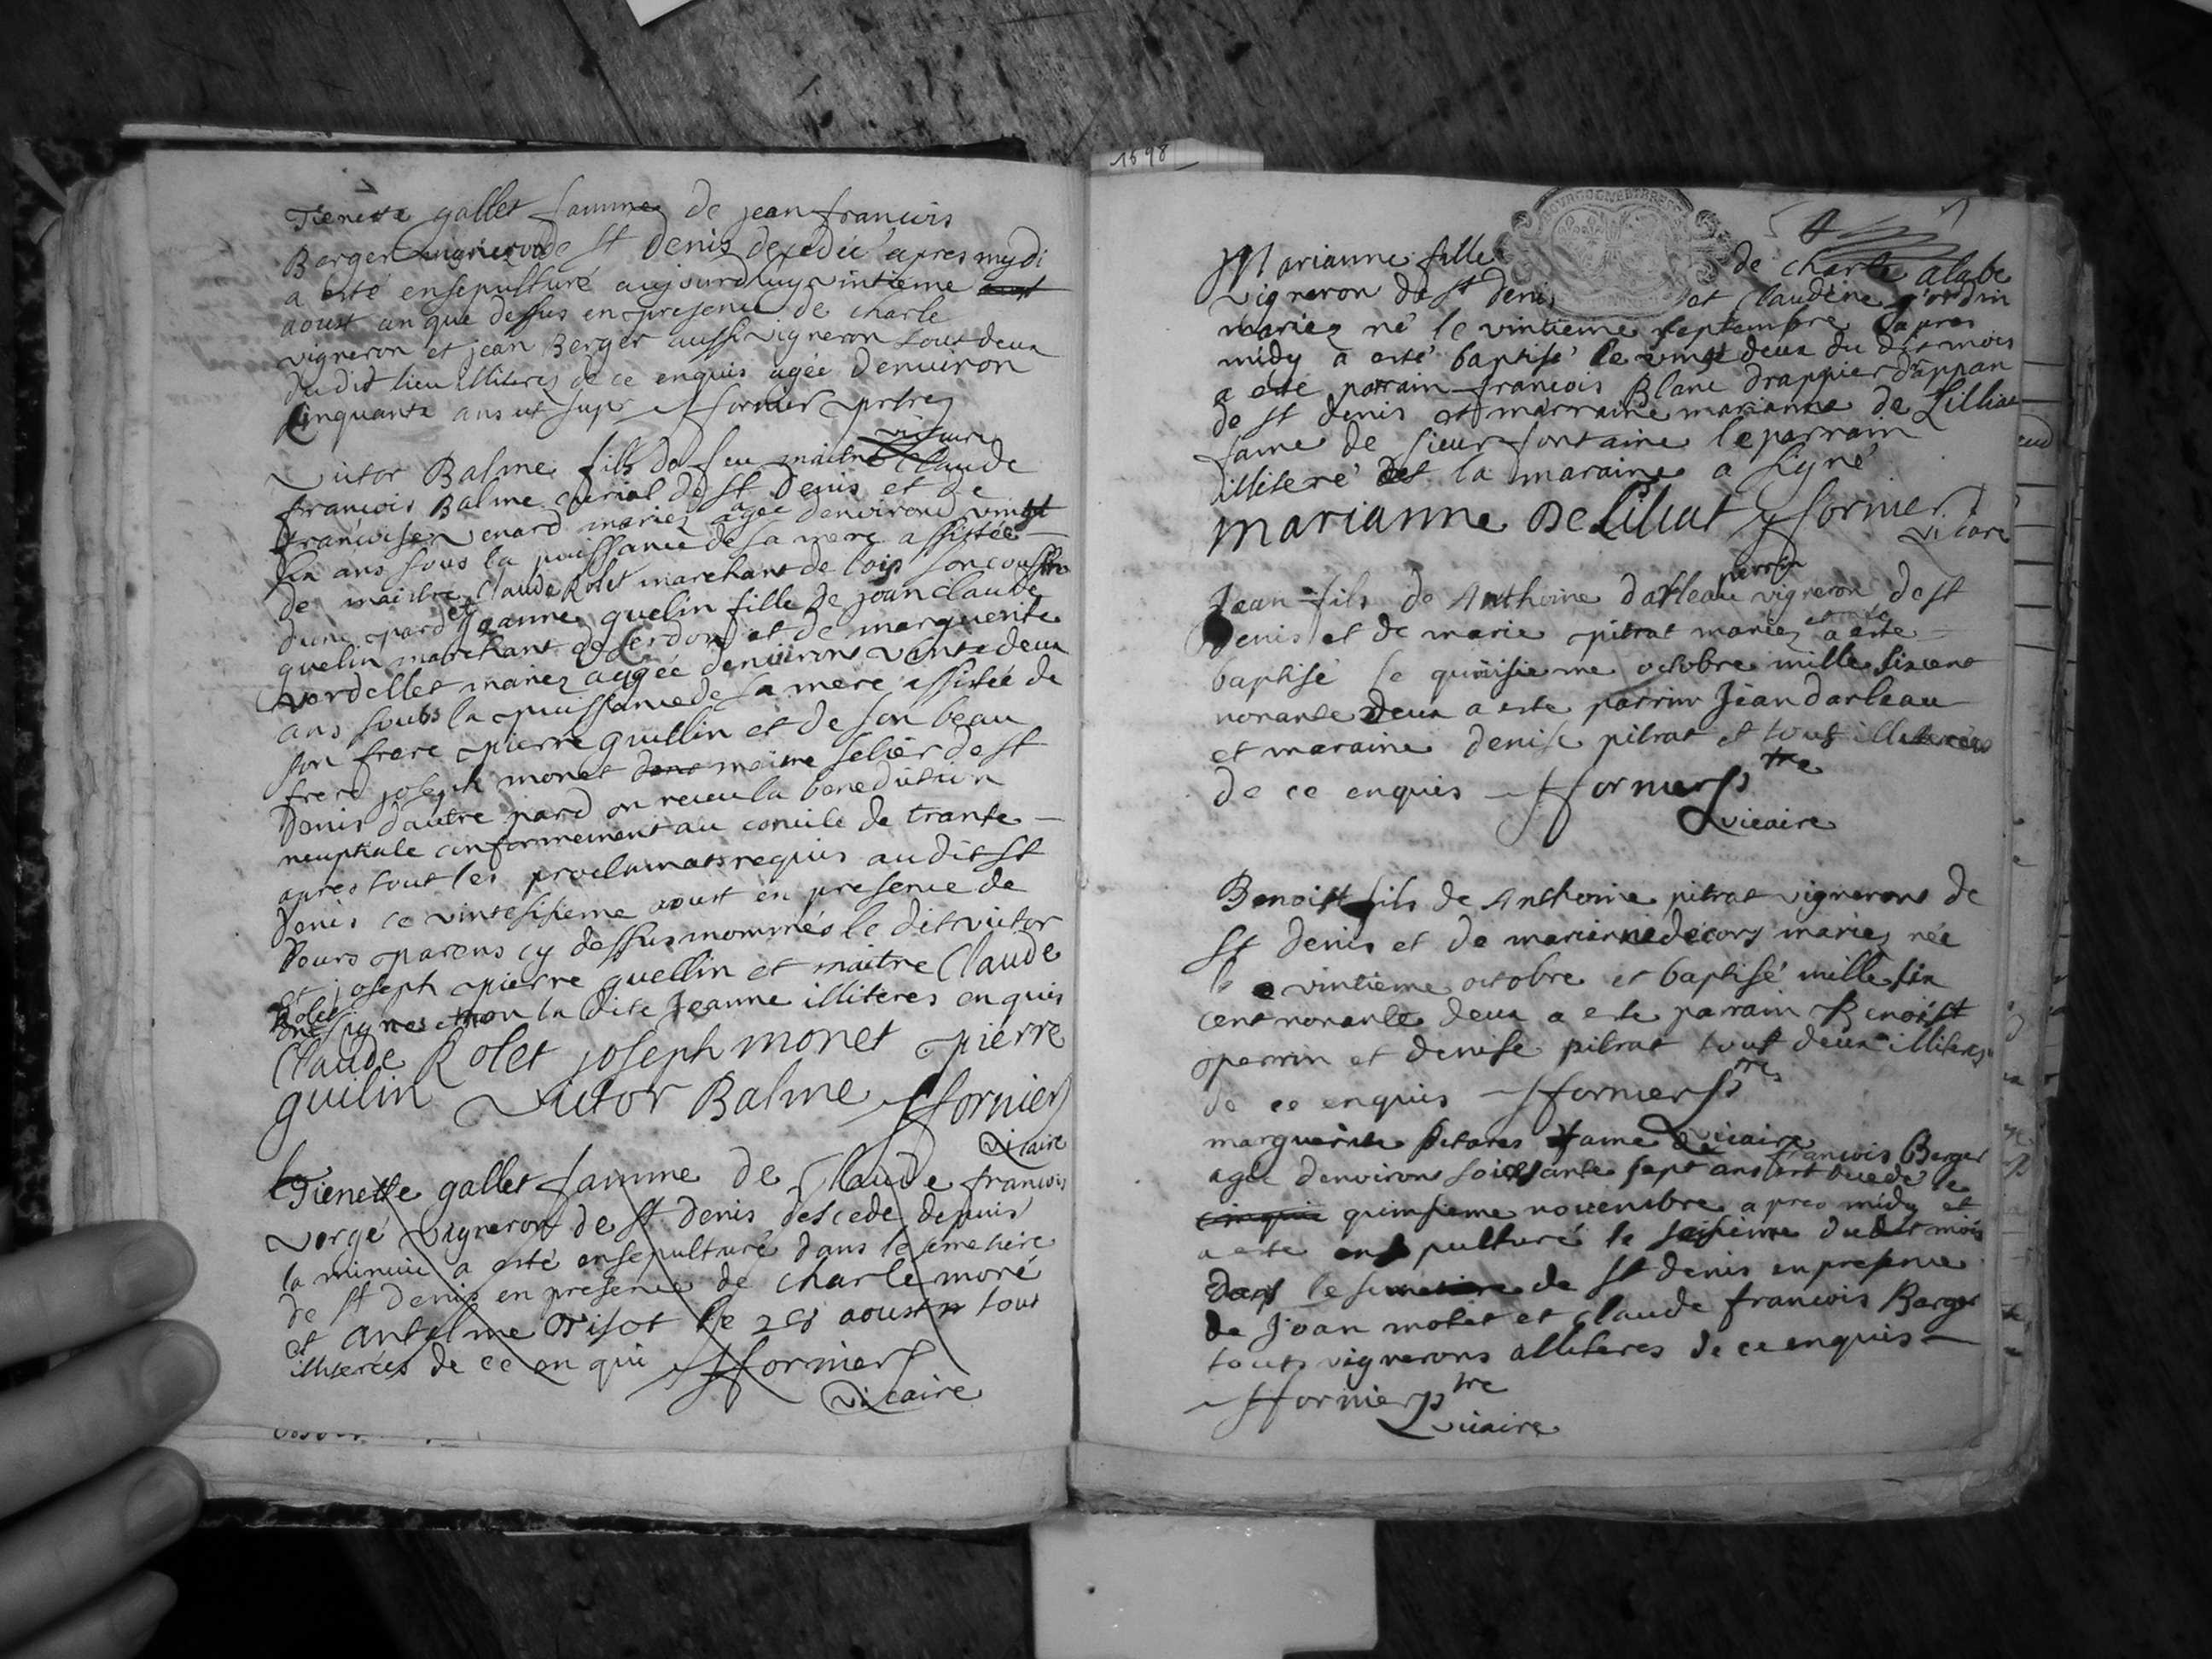 Tienette gallet famme de jean francois
Berger vigneron de st Denis decedée apres mydi
a esté ensepulturé aujourdhuy vintieme
aoust an que dessus en presence de charle
vigneron et jean Berger aussi vigneron tout deux
dudit lieu illiteres de ce enquis agée denviron
cinquante ans ut supr fornier prtre
vicaire
victor Balme fils de feu maitre Claude
francois Balme de st Denis et de
francoise venard mariez agée denviron vingt
six ans sous la puissance de sa mere assistée
de maistre Claude Rolet marchant de lois son cousin
dune pard et Jeanne quelin fille de joan claude
quelin marchant de Cerdon et de marguerite
vordellet mariez aagée denviron vinte deux
ans soubs la puissance de sa mere assistée de
son frere pierre quellin et de son beau
frere joseph monet maitre selier de st
Denis dautre pard on receu la benediction
neuptiale conformement au concile de trante
apres tout les proclamats requis audit st
Denis ce vintesisieme aoust en presence de
leurs parens cy dessus nommés le dit victor
et joseph pierre quellin et maitre Claude
Rolet ont signes et non la dite Jeanne illiteres enquis
Claude Rolet joseph monet pierre
guilin victor Balme fornier
vicaire
Tienette gallet famme de Claude francois
vergé vigneron de st denis descede depuis
la minuie a esté ensepulturé dans le semetiere
de st denis en presence de charle moré
et antelme le 28 aoust tout
illiterées de ce en qui fornier
vicaire
1698
BOURGOGNE BRESSE
Marianne fille de charle alabe
vigneron de st denis et claudine
mariez né le vintieme septembre apres
midy a esté baptisé le vingt deux du dit mois
a esté parrain francois Blanc drappier
de st denis et marraine marianne de Lilliat
fame de sieur fontaine le parrain
illiteré et la maraine a signé
marianne De Liliat fornier
vicare
perrin
Jean fils de Anthoine darleau vigneron de st
Denis et de marie pitrat mariez a esté
baptisé le quinsieme octobre mille sixcent
nonante deux a este parrin Jean darleau
et maraine denise pitrat et tous illiterés
de ce enquis fornier ptre
vicaire
Benoist fils de Anthoine pitrat vigneron de
st denis et de marianne decors mariez née
le vintieme octobre et baptisé mille six
cent nonante deux a este parrain Benoist
perrin et denise pitrat tout deux illiteres
de ce enquis fornier ptre
vicaire
marguerite fame de francois Berger
agée denviron soissante sept ans est decede le
quinsieme novembre apres midy et
a este ensepulturé le seisieme dudit mois
dans le semetiere de st denis en presence
de Joan molet et claude francois Berger
touts vignerons alliteres de ce enquis
fornier ptre
vicaire